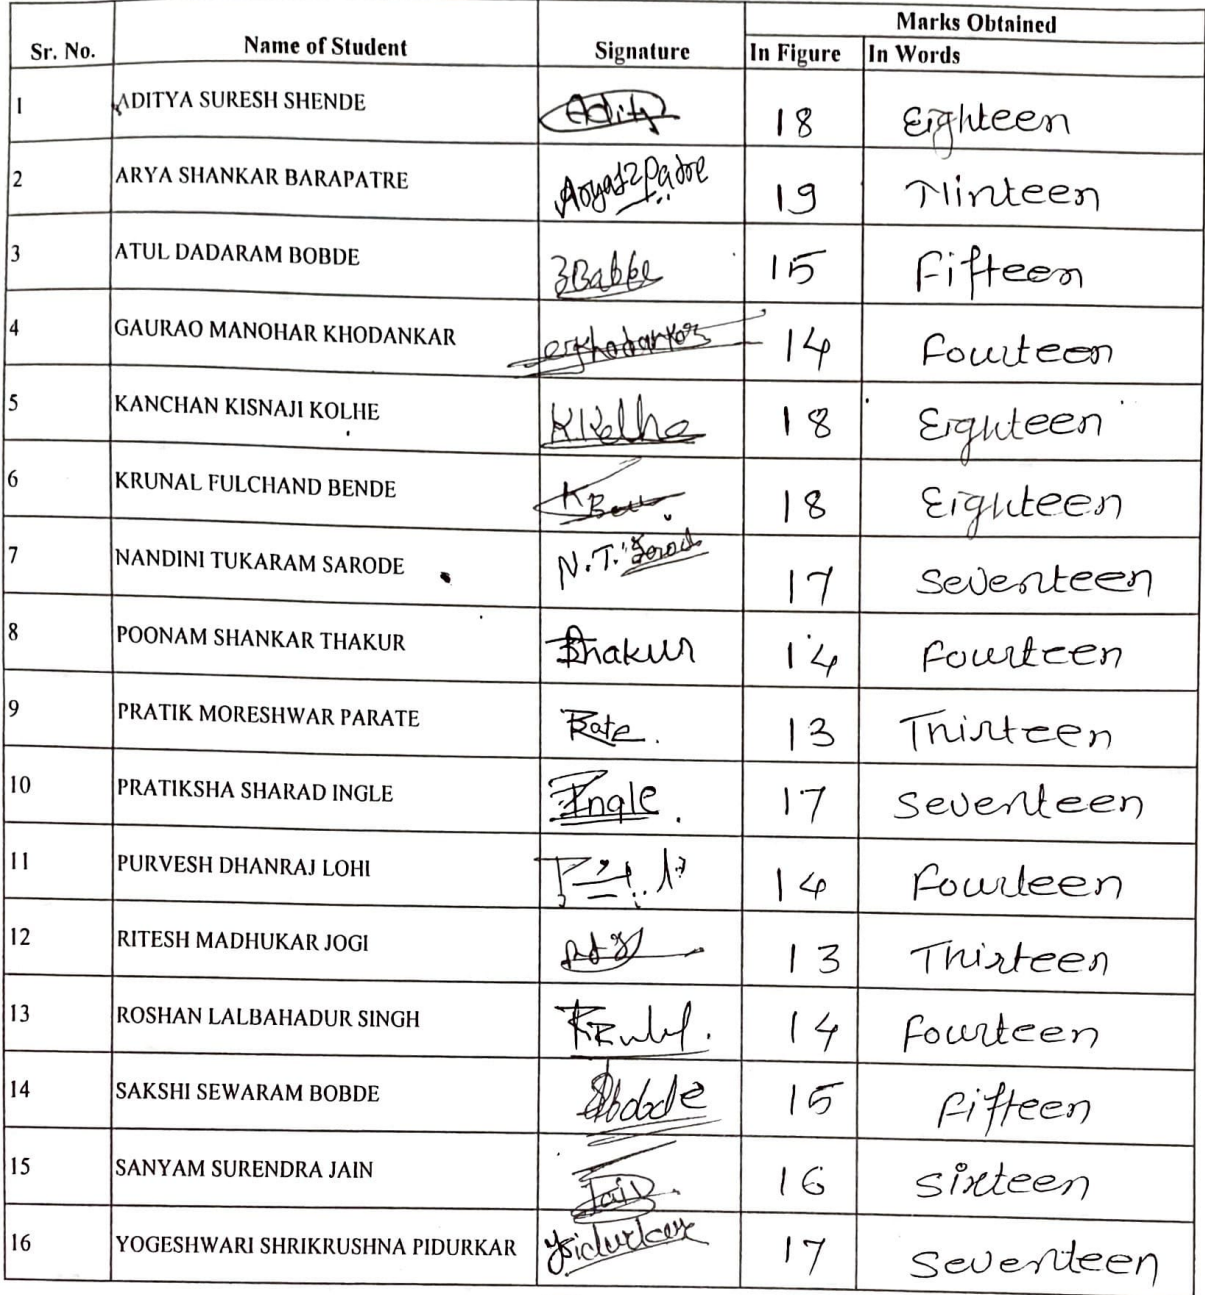 Sr. No. Name of Student Signature Marks Obtained
In Figure In Words
1 ADITYA SURESH SHENDE Adity 18 Eighteen
2 ARYA SHANKAR BARAPATRE 19 Ninteen
3 ATUL DADARAM BOBDE 15 Fifteen
4 GAURAO MANOHAR KHODANKAR 14 Fourteen
5 KANCHAN KISNAJI KOLHE K.Kolhe 18 Eighteen
6 KRUNAL FULCHAND BENDE 18 Eighteen
7 NANDINI TUKARAM SARODE N.T. Sarode 17 Seventeen
8 POONAM SHANKAR THAKUR Thakur 14 Fourteen
9 PRATIK MORESHWAR PARATE 13 Thirteen
10 PRATIKSHA SHARAD INGLE Ingle 17 Seventeen
11 PURVESH DHANRAJ LOHI 14 Fourteen
12 RITESH MADHUKAR JOGI 13 Thirteen
13 ROSHAN LALBAHADUR SINGH 14 Fourteen
14 SAKSHI SEWARAM BOBDE Sbobde 15 Fifteen
15 SANYAM SURENDRA JAIN Jain 16 Sixteen
16 YOGESHWARI SHRIKRUSHNA PIDURKAR 17 Seventeen